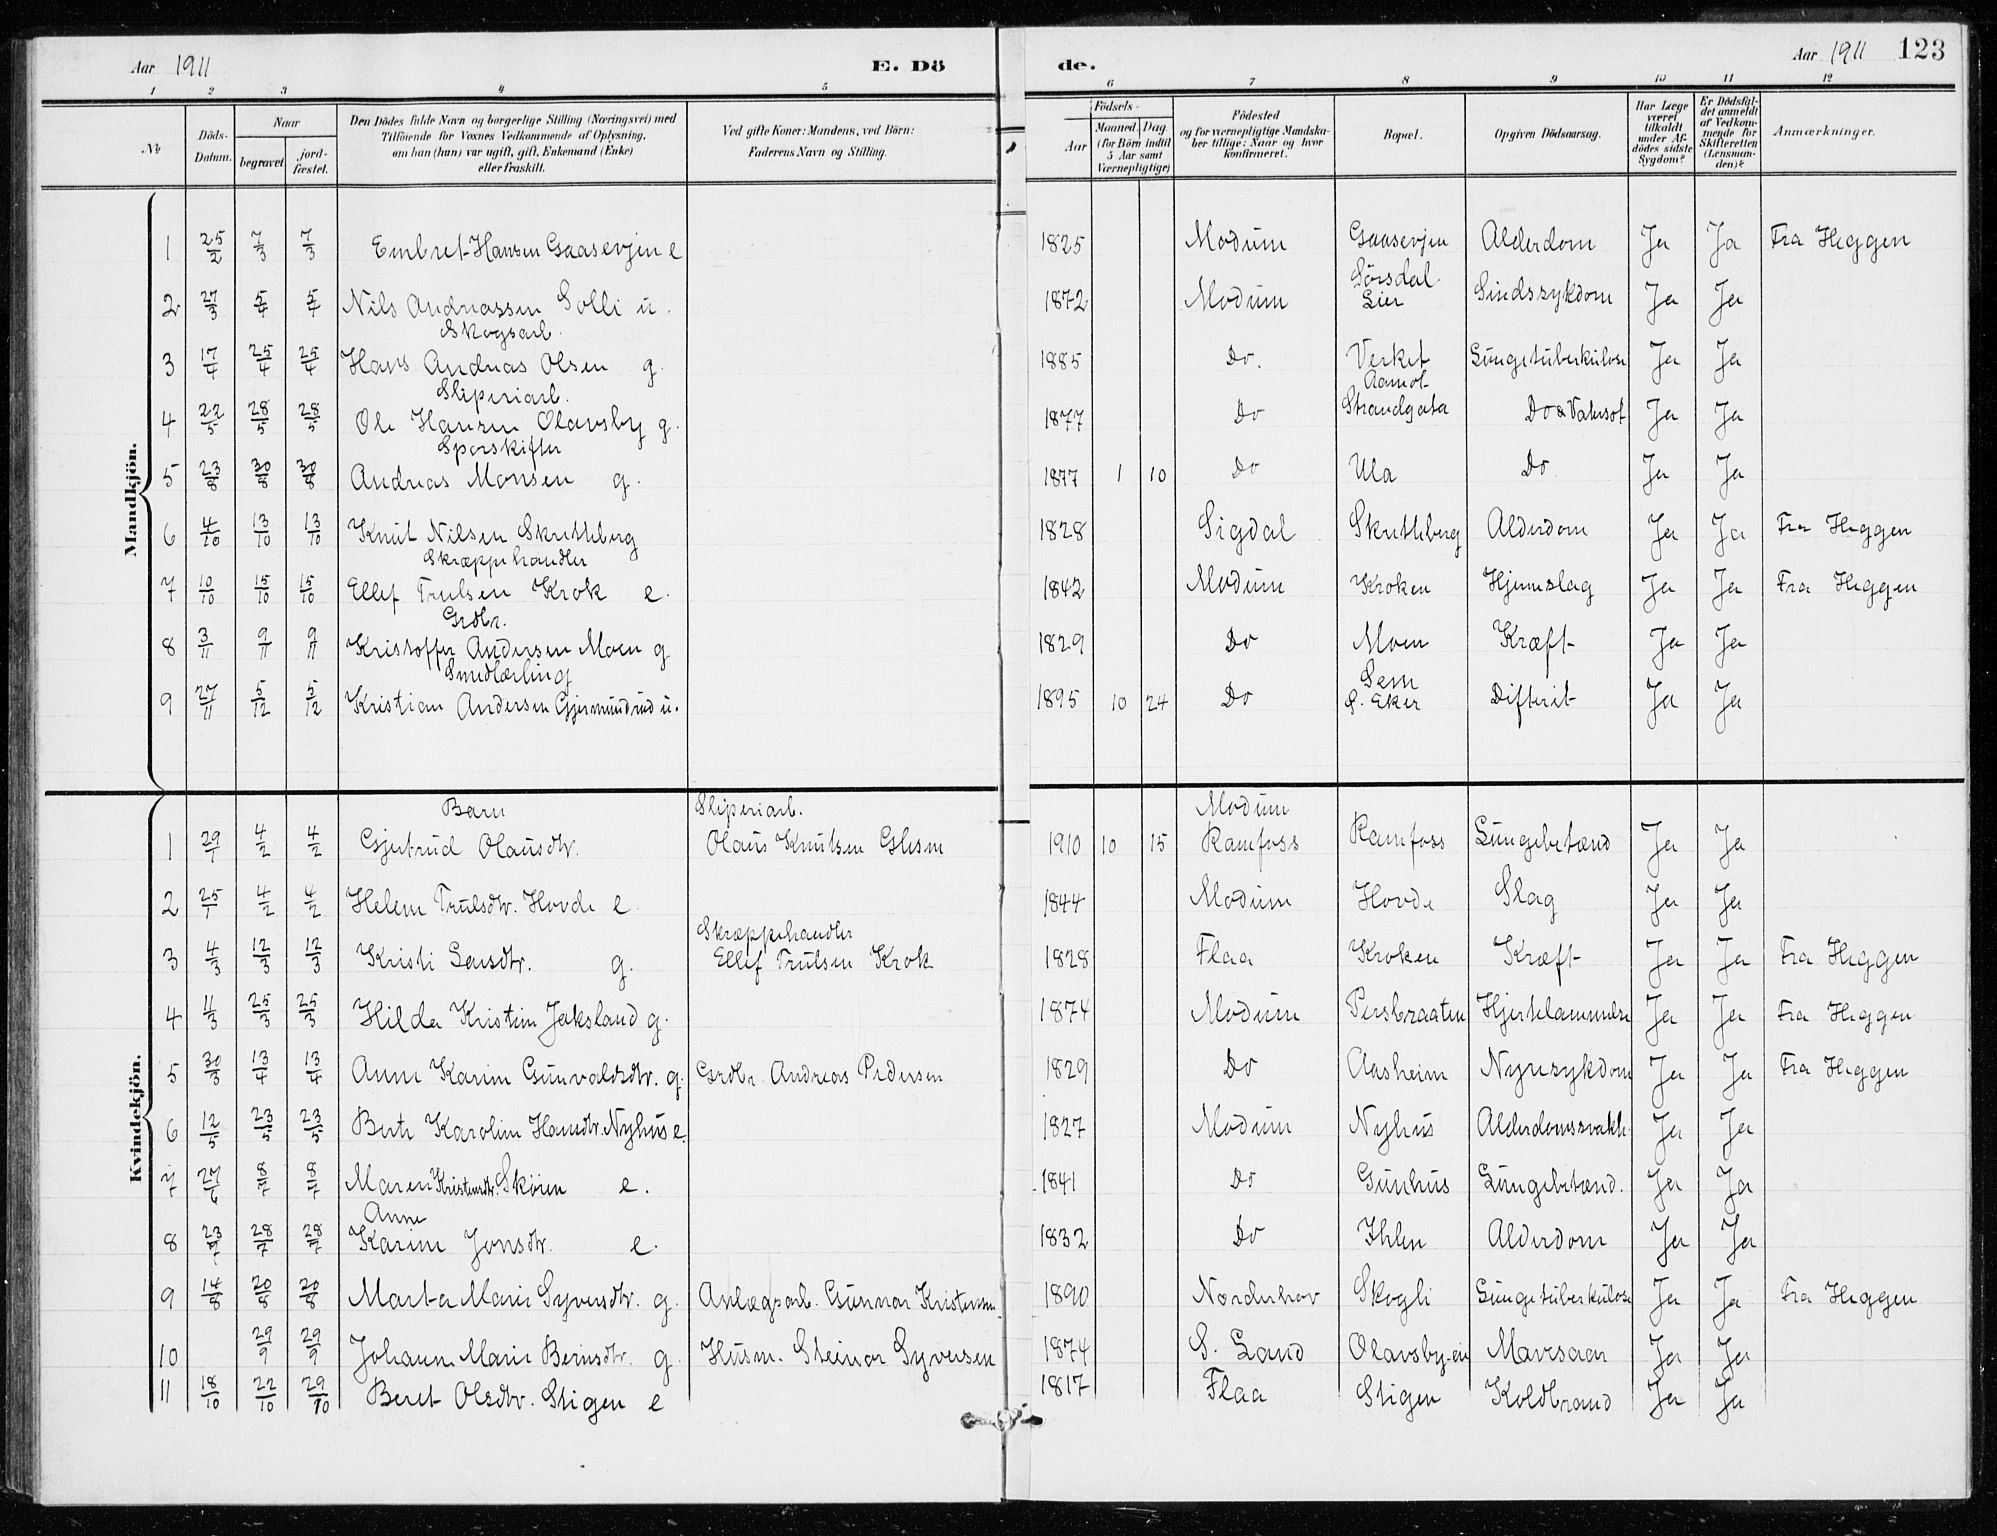 Aar 1911 E. Dö de. Aar 1911 123
1 2 3 4 5 6 7 8 9 10 11 12
№ Döds-Datum. Naar begravet jordfæstet. Den Dödes fulde Navn og borgerlige Stilling (Næringsvei) med Tilföiende for Voxnes Vedkommende af Oplysning, om han (hun) var ugift, gift, Enkemand (Enke) eller fraskilt. Ved gifte Koner: Mandens, ved Börn: Faderens Navn og Stilling. Födsels- Aar Maaned. Dag (for Börn indtil 5 Aar samt Værnepligtige) Födested og for værnepligtige Mandskaber tillige: Naar og hvor konfirmeret. Bopæl. Opgiven Dödsaarsag. Har Læge været tilkaldt under Afdödes sidste Sygdom? Er Dödsfaldet anmeldt af Vedkommende for Skifteretten (Lensmanden)? Anmærkninger.
Mandkjön.
1 25/2 7/3 7/3 Embret Hansen Gaasevjen e 1825 Modum Gaasevjen Alderdom Ja Ja Fra Heggen
2 27/3 5/4 5/4 Nils Andreassen Solli u. 1872 Modum Sørsdal Lier Sindssykdom Ja Ja
Skogsarb.
3 17/4 25/4 25/4 Hans Andreas Olsen g. 1885 Do. Verket Lungetuberkulose Ja Ja
Sliperiarb. Aamot
4 22/5 28/5 28/5 Ole Hansen Olavsby g. 1877 Do Strandgata Do & Vatersot Ja Ja
Sporskifter
5 23/8 30/8 30/8 Andreas Monsen g. 1877 1 10 Do Ula Do Ja Ja
6 4/10 13/10 13/10 Knut Nilsen Skuttberg 1828 Sigdal Skuttberg Alderdom Ja Ja Fra Heggen
Skræppehandler
7 10/10 15/10 15/10 Ellef Trulsen Krok e. 1842 Modum Kroken Hjerneslag Ja Ja Fra Heggen
Grdbr.
8 3/11 9/11 9/11 Kristoffer Andersen Moen g 1829 Do Moen Kræft Ja Ja
Smedlærling Sem
9 27/11 5/12 5/12 Kristian Andersen Gjermundrud u. 1895 10 24 Do S. Eker Difterit Ja Ja
Kvindekjön.
Barn Sliperiarb. Modum
1 29/1 4/2 4/2 Gjertrud Olausdtr. Olaus Knutsen Glesne 1910 10 15 Ramfoss Ramfoss Lungebetænd Ja Ja
2 25/1 4/2 4/2 Helene Trulsdtr. Hovde e 1844 Modum Hovde Slag Ja Ja
Skræppehandler
3 4/3 12/3 12/3 Kristi Larsdtr. g. Ellef Trulsen Krok 1828 Flaa Kroken Kræft Ja Ja Fra Heggen
4 11/3 25/3 25/3 Hilda Kristine Jaksland g. 1874 Modum Persbraaten Hjertelammelse Ja Ja Fra Heggen
5 30/3 13/4 13/4 Anne Karine Gunvaldsdtr. g. Grdbr. Andreas Pedersen 1829 Do Aasheim Nyresykdom Ja Ja Fra Heggen
6 12/5 23/5 23/5 Berte Karoline Hansdtr. Nyhus e 1827 Modum Nyhus Alderdomssvakh Ja Ja
7 27/6 8/7 8/7 Maren Kristensdtr. Skøien e. 1841 Do Gunhus Lungebetænd. Ja Ja
Anne
8 23/7 28/7 28/7 Karine Jonsdtr. e. 1832 Do Ihlen Alderdom Ja Ja
9 14/8 20/8 20/8 Marta Marie Syversdtr. g. Anlægsarb. Gunnar Kristensen 1890 Norderhov Skogli Lungetuberkulose Ja Ja Fra Heggen
10 29/9 29/9 Johanne Marie Berntsdtr. g. Husm. Steinar Syversen 1874 S. Land Olavsby-eie Mavesaar Ja Ja
11 18/10 22/10 29/10 Beret Olsdtr. Stigen e 1817 Flaa Stigen Koldbrand Ja Ja